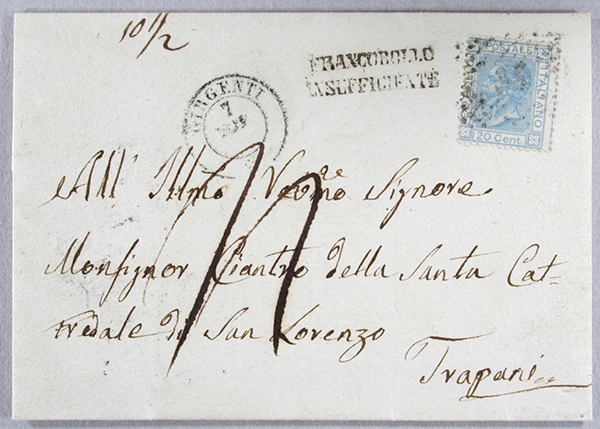 10 1/2
FRANCOBOLLO
INSUFFICIENTE
POSTALE
ITALIANO
20 Cent.
GIRGENTI
7
All' Illmo Revmo Signore
Monsignor Ciantro della Santa Cat-
tredale di San Lorenzo
Trapani